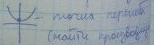 - точка перегиба
(найти производную